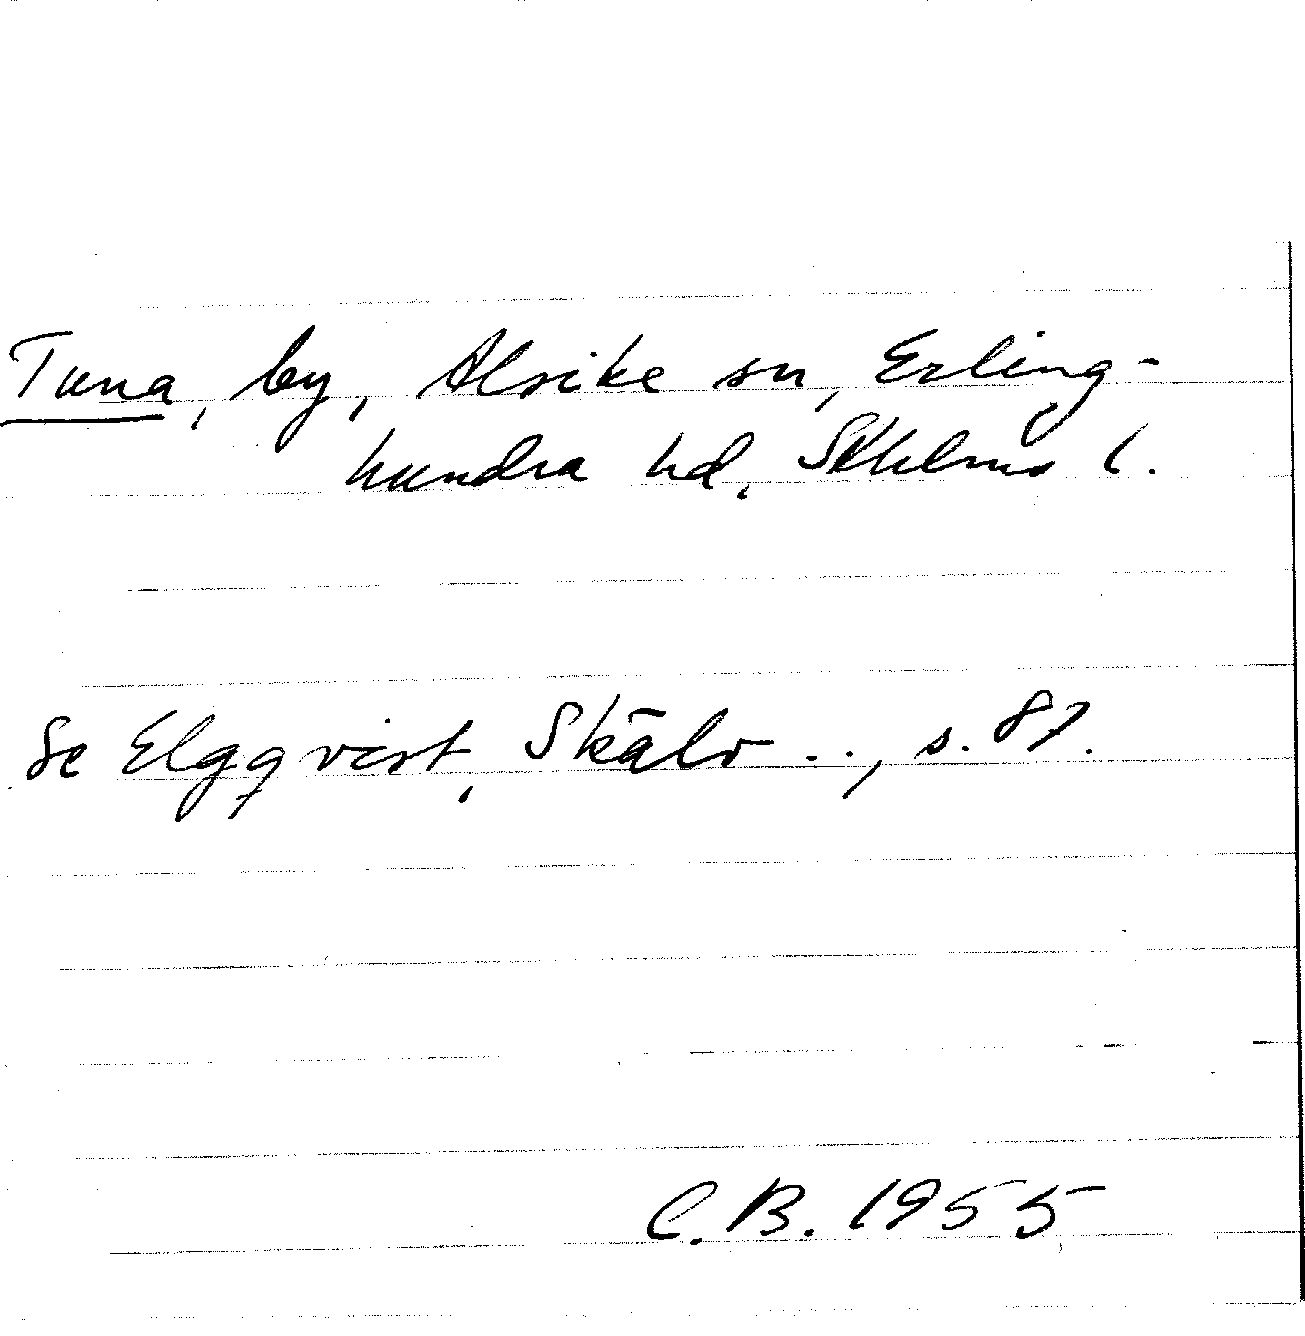 Tuna, by, Alsike sn, Erling-
hundra hd, Sthlms l.
Se Elgqvist, Skälv.., s. 87.
C.B. 1955